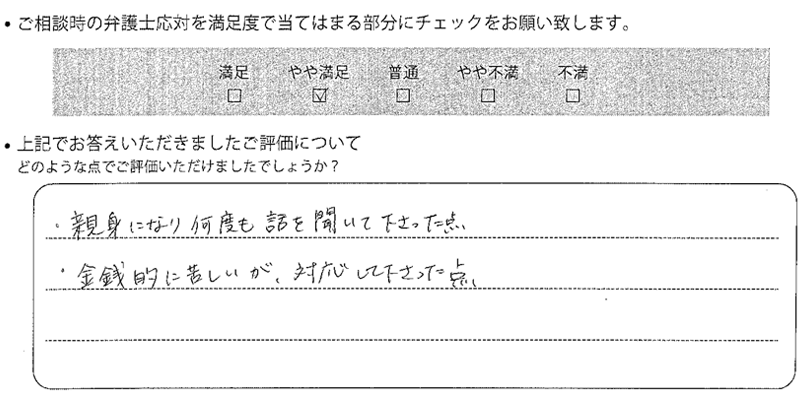 • ご相談時の弁護士応対を満足度で当てはまる部分にチェックをお願い致します。
満足 やや満足 普通 やや不満 不満
□ ☑ □ □ □
• 上記でお答えいただきましたご評価について
どのような点でご評価いただけましたでしょうか？
・親身になり何度も話を聞いて下さった点、
・金銭的に苦しいが、対応して下さった点、